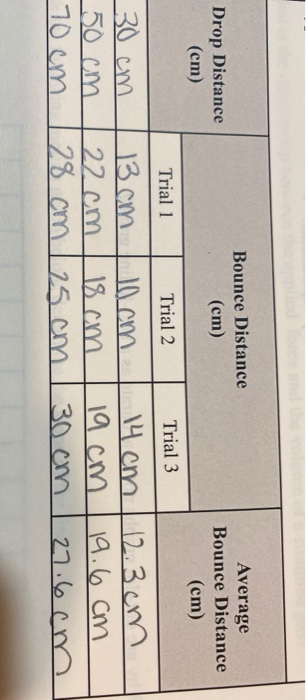 Drop Distance
(cm)
Bounce Distance
(cm)
Average
Bounce Distance
(cm)
Trial 1 Trial 2 Trial 3
30 cm 13 cm 10 cm 14 cm 12.3 cm
50 cm 22 cm 18 cm 19 cm 19.6 cm
70 cm 28 cm 25 cm 30 cm 27.6 cm